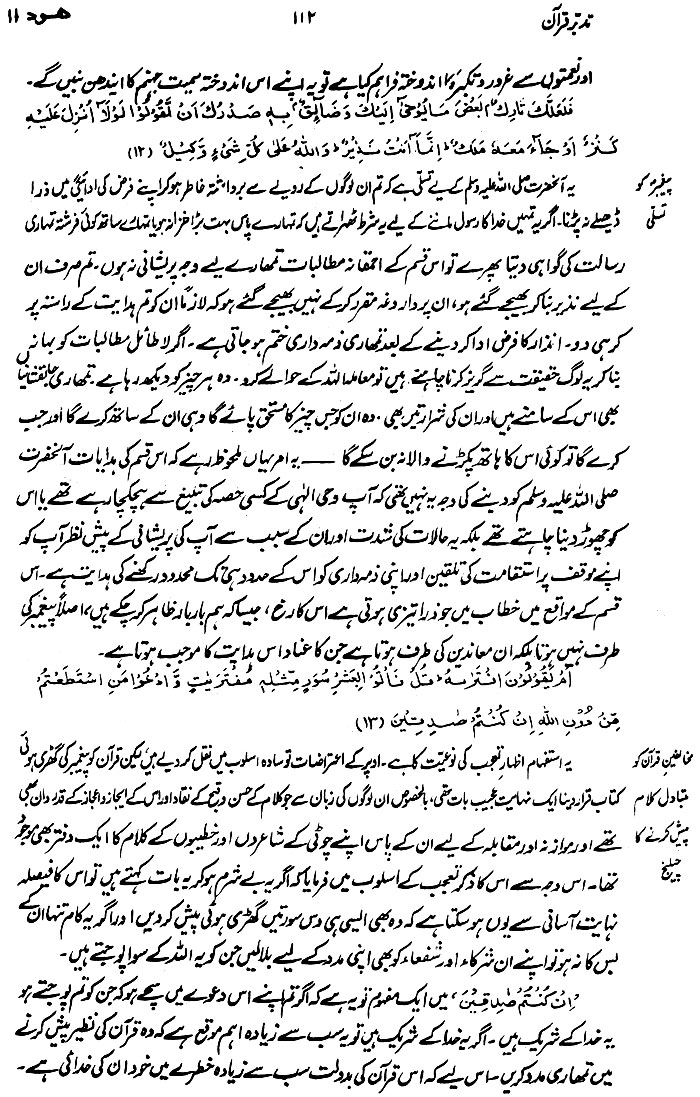 تدبر قرآن ۱۱۲ ھود ۱۱
اور نعمتوں سے غرور و تکبر کا اندوختہ فراہم کیا ہے تو یہ اپنے اس اندوختہ سمیت جہنم کا ایندھن بنیں گے۔
فَلَعَلَّكَ تَارِكٌۢ بَعْضَ مَا يُوحَىٰٓ إِلَيْكَ وَضَآئِقٌۢ بِهٖ صَدْرُكَ اَنْ يَّقُوْلُوْا لَوْلَآ اُنْزِلَ عَلَيْهِ
كَنْزٌ اَوْ جَآءَ مَعَهٗ مَلَكٌ ؕ اِنَّمَآ اَنْتَ نَذِيْرٌ ؕ وَاللّٰهُ عَلٰى كُلِّ شَيْءٍ وَّكِيْلٌ (۱۲)
پیغمبرؐ کو
تسلی
یہ آنحضرت صلی اللہ علیہ وسلم کے لیے تسلی ہے کہ تم ان لوگوں کے رویے سے برداشتہ خاطر ہو کر اپنے فرض کی ادائیگی میں ذرا
ڈھیلے نہ پڑنا۔ اگر یہ تمہیں خدا کا رسول ماننے کے لیے یہ شرط ٹھہراتے ہیں کہ تمہارے پاس بہت بڑا خزانہ ہو یا تمہارے ساتھ کوئی فرشتہ تمہاری
رسالت کی گواہی دیتا پھرے تو اس قسم کے احمقانہ مطالبات تمھارے لیے وجہ پریشانی نہ ہوں۔ تم صرف ان
کے لیے نذیر بنا کر بھیجے گئے ہو، ان پر داروغہ مقرر کر کے نہیں بھیجے گئے ہو کہ لازماً ان کو تم ہدایت کے راستہ پر
کر ہی دو۔ انذار کا فرض ادا کر دینے کے بعد تمھاری ذمہ داری ختم ہو جاتی ہے۔ اگر لاطائل مطالبات کو بہانہ
بنا کر یہ لوگ حقیقت سے گریز کرنا چاہتے ہیں تو معاملہ اللہ کے حوالے کرو۔ وہ ہر چیز کو دیکھ رہا ہے۔ تمھاری جانفشانیاں
بھی اس کے سامنے ہیں اور ان کی شرارتیں بھی۔ وہ ان کو جس چیز کا مستحق پائے گا وہی ان کے ساتھ کرے گا اور جب
کرے گا تو کوئی اس کا ہاتھ پکڑنے والا نہ بن سکے گا —— یہ امر یہاں ملحوظ رہے کہ اس قسم کی ہدایات آنحضرت
صلی اللہ علیہ وسلم کو دینے کی وجہ یہ نہیں تھی کہ آپ وحی الٰہی کے کسی حصہ کی تبلیغ سے ہچکچا رہے تھے یا اس
کو چھوڑ دینا چاہتے تھے بلکہ یہ حالات کی شدت اور ان کے سبب سے آپ کی پریشانی کے پیش نظر آپ کو
اپنے موقف پر استقامت کی تلقین اور اپنی ذمہ داری کو اس کے حدود ہی تک محدود رکھنے کی ہدایت ہے۔ اس
قسم کے مواقع میں خطاب میں جو ذرا تیزی ہوتی ہے اس کا رخ، جیسا کہ ہم بار بار ظاہر کر چکے ہیں، اصلاً پیغمبرؐ کی
طرف نہیں ہوتا بلکہ ان معاندین کی طرف ہوتا ہے جن کا عناد اس ہدایت کا موجب ہوتا ہے۔
اَمْ يَقُوْلُوْنَ افْتَرٰىهُ ؕ قُلْ فَاْتُوْا بِعَشْرِ سُوَرٍ مِّثْلِهٖ مُفْتَرَيٰتٍ وَّادْعُوْا مَنِ اسْتَطَعْتُمْ
مِّنْ دُوْنِ اللّٰهِ اِنْ كُنْتُمْ صٰدِقِيْنَ (۱۳)
مخالفین قرآن کو
متبادل کلام
پیش کرنے کا
چیلنج
یہ استفہام اظہار تعجب کی نوعیت کا ہے۔ اوپر کے اعتراضات تو سادہ اسلوب میں نقل کر دیے ہیں لیکن قرآن کو پیغمبرؐ کی گھڑی ہوئی
کتاب قرار دینا ایک نہایت عجیب بات تھی، بالخصوص ان لوگوں کی زبان سے جو کلام کے حسن و قبح کے نقاد اور اس کے ایجاز و اعجاز کے قدردان بھی
تھے اور موازنہ اور مقابلہ کے لیے ان کے پاس اپنے چوٹی کے شاعروں اور خطیبوں کے کلام کا ایک دفتر بھی موجود
تھا۔ اس وجہ سے اس کا ذکر تعجب کے اسلوب میں فرمایا کہ اگر یہ بے شرم ہو کر یہ بات کہتے ہیں تو اس کا فیصلہ
نہایت آسانی سے یوں ہو سکتا ہے کہ وہ بھی ایسی ہی دس سورتیں گھڑی ہوئی پیش کر دیں اور اگر یہ کام تنہا ان کے
بس کا نہ ہو تو اپنے ان شرکاء اور شفعاء کو بھی اپنی مدد کے لیے بلا لیں جن کو یہ اللہ کے سوا پوجتے ہیں۔
’اِنْ كُنْتُمْ صٰدِقِيْنَ‘ میں ایک مفہوم تو یہ ہے کہ اگر تم اپنے اس دعوے میں سچے ہو کہ جن کو تم پوجتے ہو
یہ خدا کے شریک ہیں۔ اگر یہ خدا کے شریک ہیں تو یہ سب سے زیادہ اہم موقع ہے کہ وہ قرآن کی نظیر پیش کرنے
میں تمھاری مدد کریں۔ اس لیے کہ اس قرآن کی بدولت سب سے زیادہ خطرے میں خود ان کی خدائی ہے۔